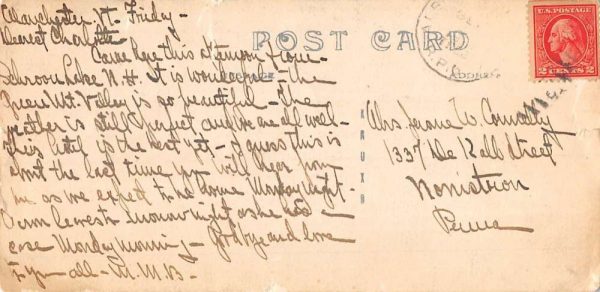 Manchester, Vt. Friday -
Dearest Charlotte
Came here this afternoon from
Schroon Lake N.H. It is wonderful - the
Green Mt. Valley is so beautiful - The
weather is still perfect and we are all well -
This hotel is the best yet - I guess this is
about the last time you will hear from
me as we expect to be home Monday night -
Sunday night as he has a
case Monday morning - Goodbye and love
to you all - M.M.B.
POST CARD
ADDRESS
KRUXO
U.S. POSTAGE
2 CENTS 2
Mrs. Jerome W. Connolly
1337 De Kalb Street
Norristown
Penna